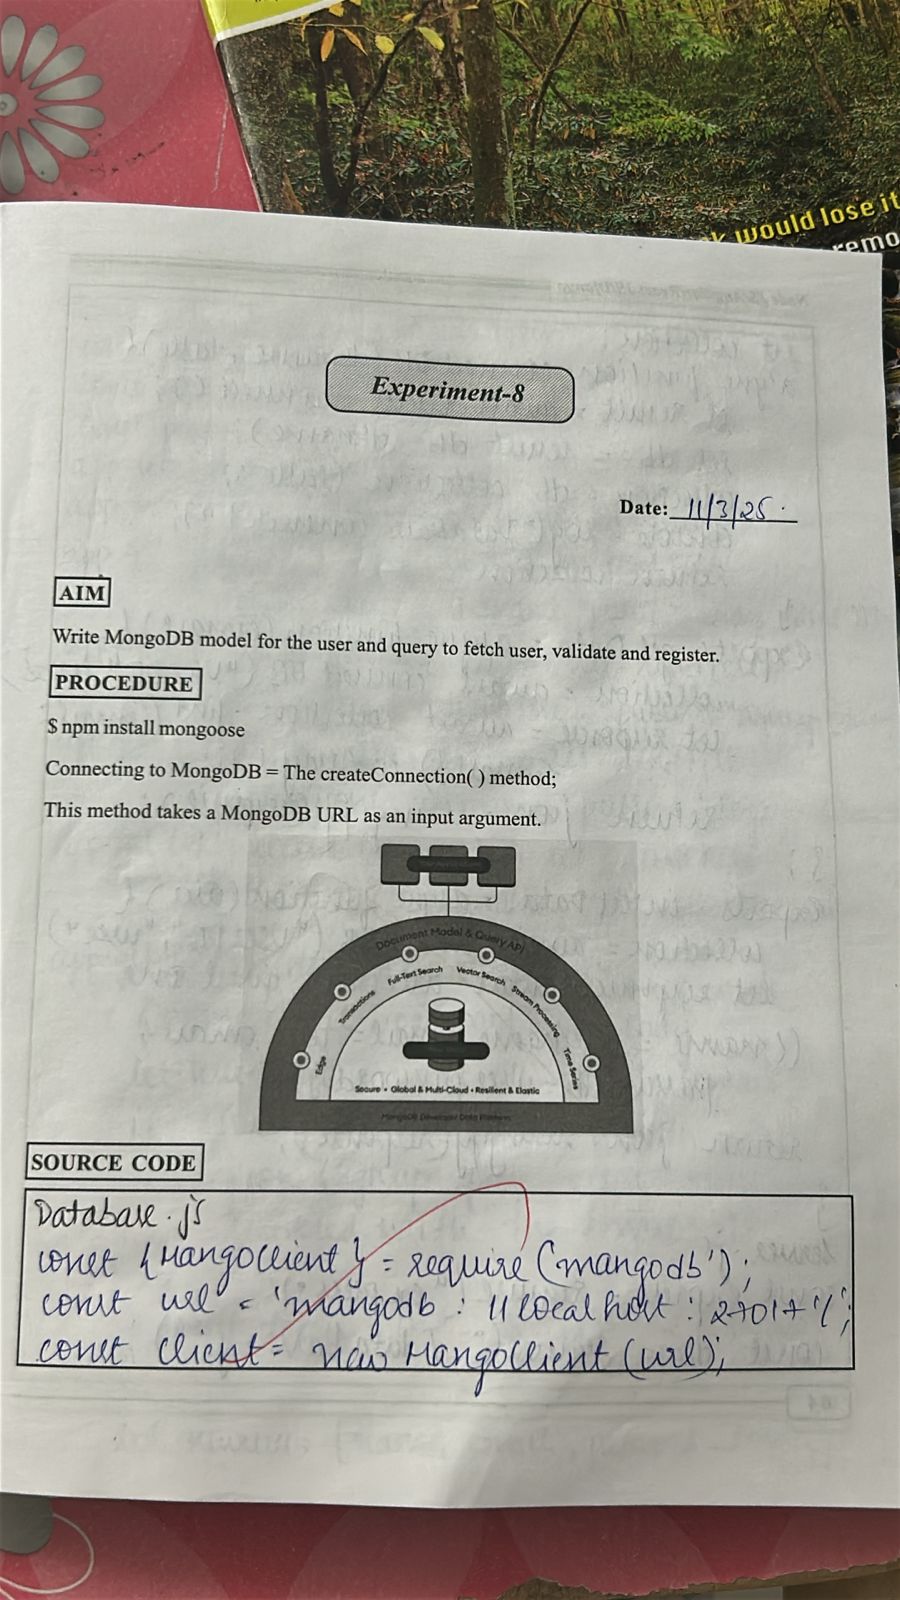 k would lose it
remo
Experiment-8
Date: 11/3/25.
AIM
Write MongoDB model for the user and query to fetch user, validate and register.
PROCEDURE
$ npm install mongoose
Connecting to MongoDB = The createConnection( ) method;
This method takes a MongoDB URL as an input argument.
Document Model & Query API
Full-Text Search
Vector Search
Transactions
Stream Processing
Edge
Time Series
Secure • Global & Multi-Cloud • Resilient & Elastic
MongoDB Developer Data Platform
SOURCE CODE
Database.js
const {MangoClient} = require (mangodb');
const url = 'mangodb : //localhost : 27017/';
const client = new MangoClient (url);